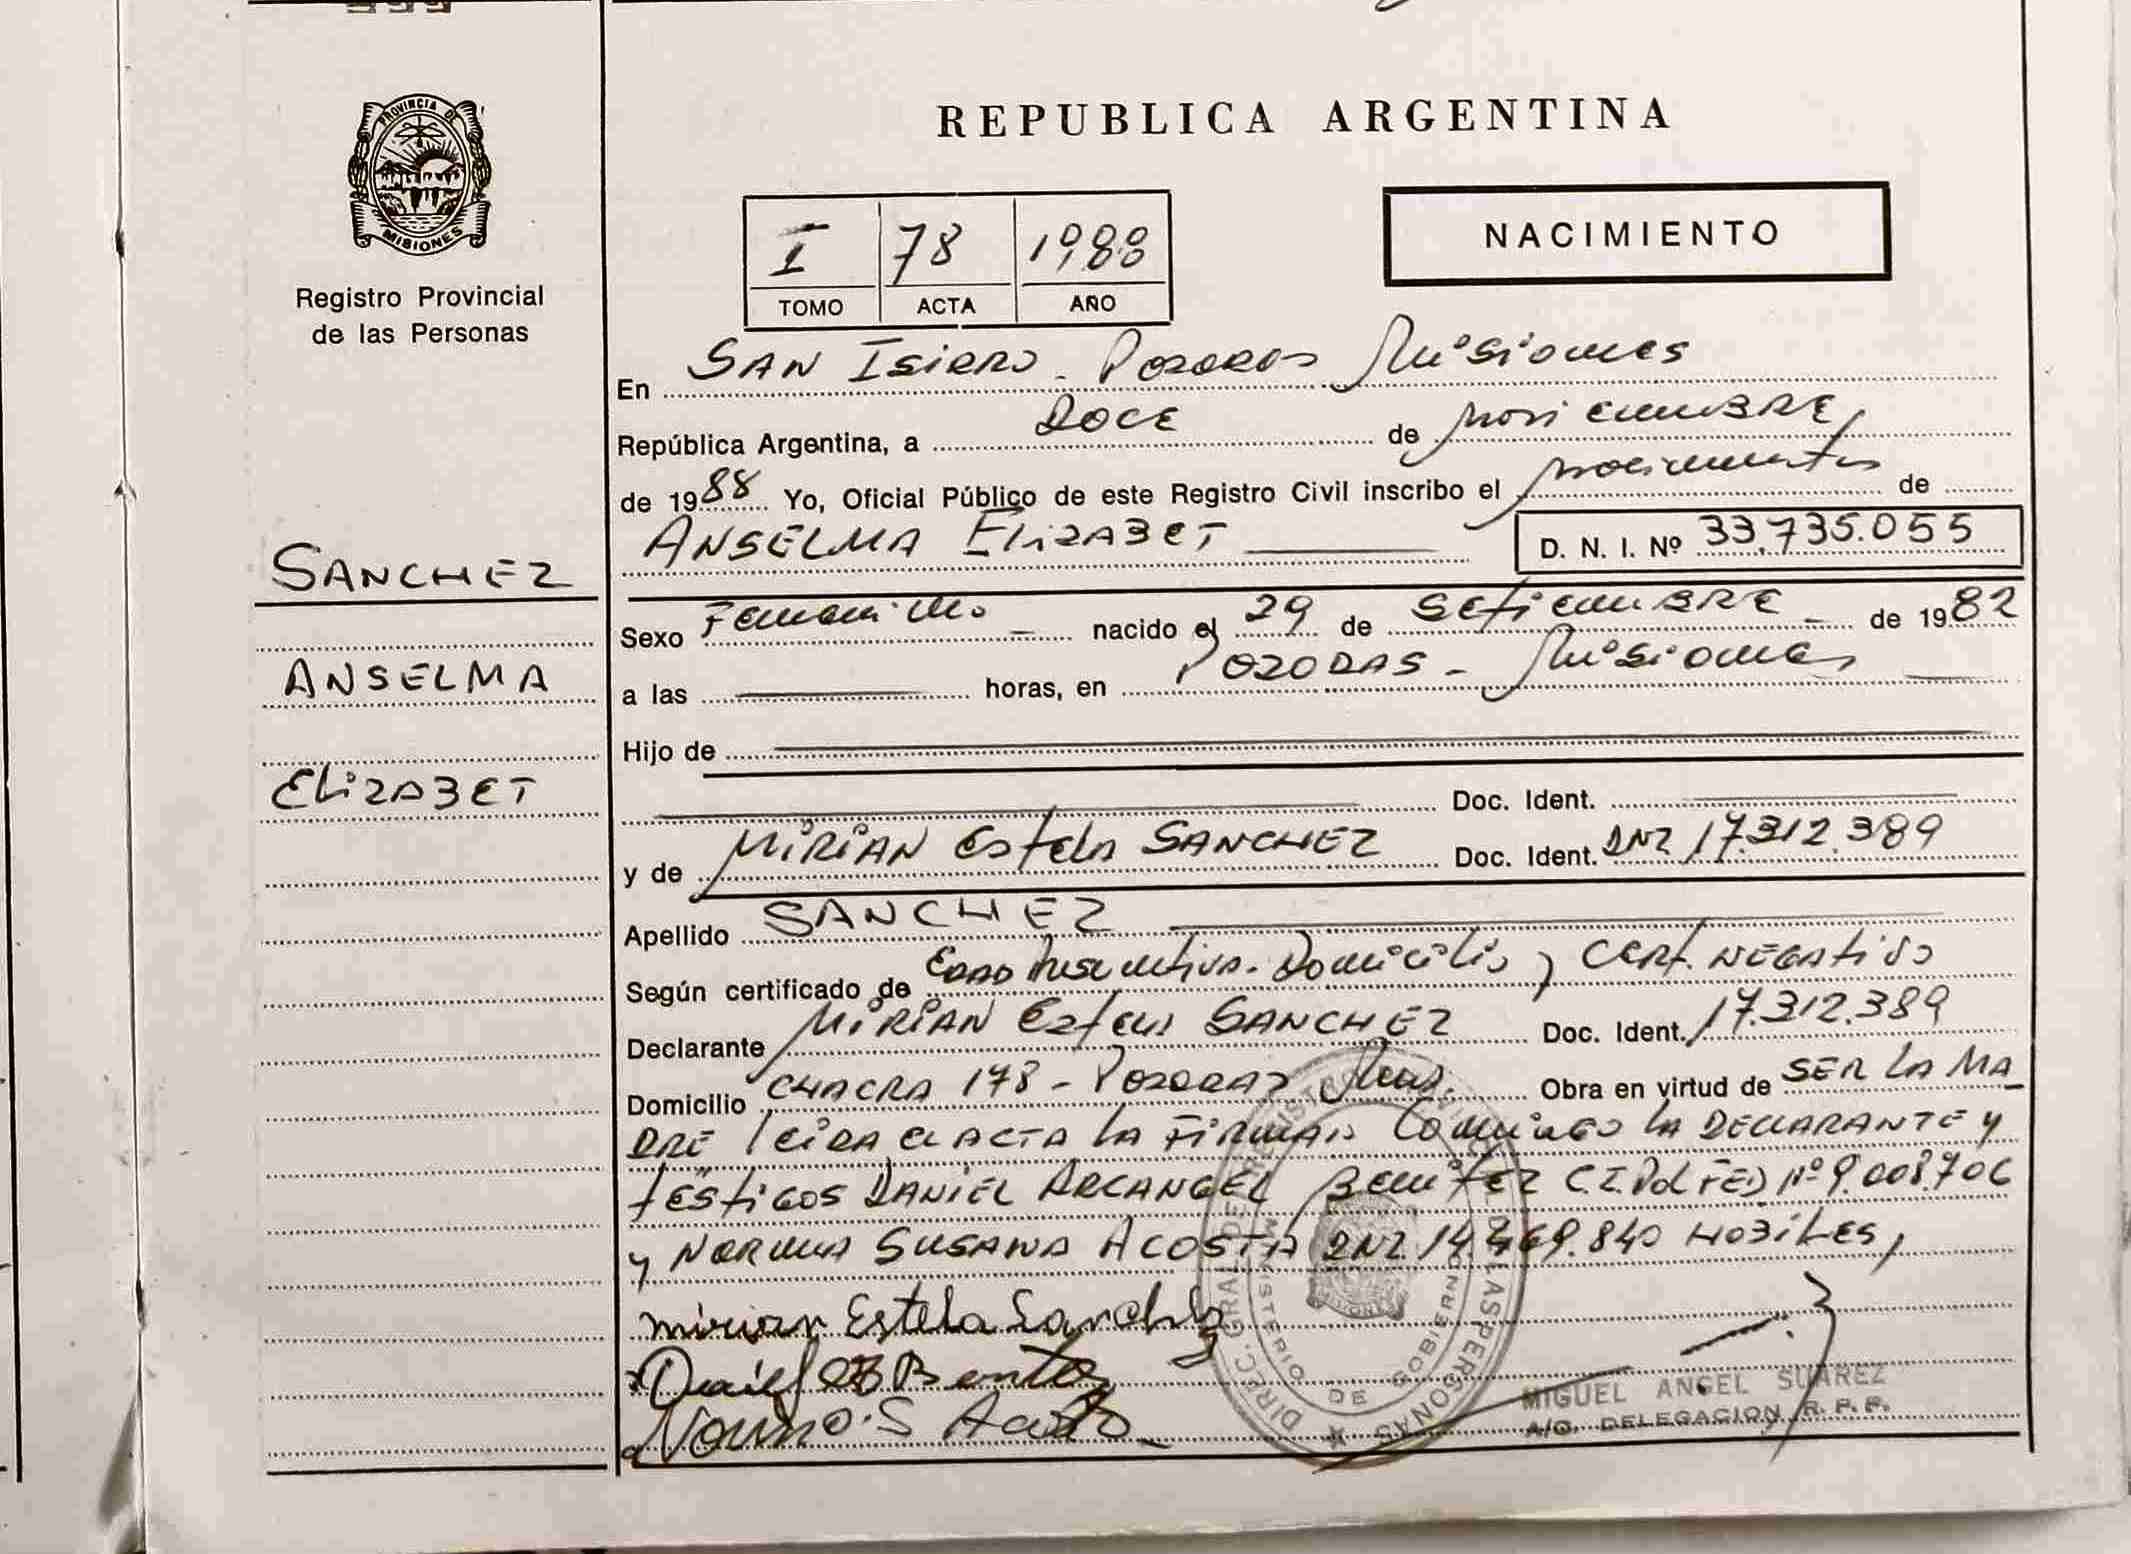 PROVINCIA DE
MISIONES
Registro Provincial
de las Personas
SANCHEZ
ANSELMA
ElizABET
REPUBLICA ARGENTINA
I 78 1988
TOMO ACTA AÑO
NACIMIENTO
En SAN Isidro - Posadas Misiones
República Argentina, a DOCE de NoviembRE,
de 1988 Yo, Oficial Público de este Registro Civil inscribo el nacimiento de
ANSELMA ElizABET D. N. I. Nº 33.735.055
Sexo Femenino nacido el 29 de SetiembRE de 1982
a las horas, en POSADAS - Misiones
Hijo de
Doc. Ident.
y de MIRIAN Estela SANCHEZ Doc. Ident. DNI 17.312.389
Apellido SANCHEZ
Según certificado de Edad Domicilio y CERT. NEGATIVO
Declarante MIRIAN Estela SANCHEZ Doc. Ident. 17.312.389
Domicilio CHACRA 178 - Posadas Mnes. Obra en virtud de SER LA MA
DRE leida el ACTA la FIRMAN Conmigo la DECLARANTE y
testigos DANIEL ARCANGEL BenitEZ C.I. Pol FED Nº 9.008.706
y NORMA SUSANA ACOSTA DNI 14.469.840 HABILES,
mirian Estela Sanchez
Daniel Benitez
Norma S Acosta
DIREC. GRAL. DE REGISTRO CIVIL DE LAS PERSONAS
MINISTERIO DE GOBIERNO
MIGUEL ANGEL SUAREZ
A/C. DELEGACION R. P. P.